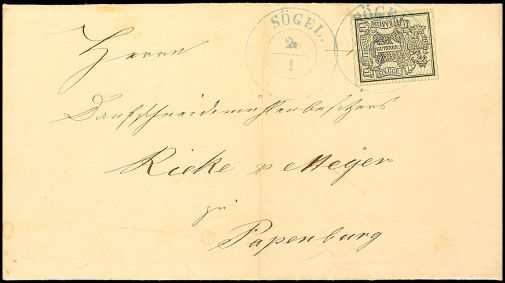 SÖGEL.
2
1
Herrn
Dampfschneidemühlenbesitzers
Rieke & Meyer
zu
Papenburg